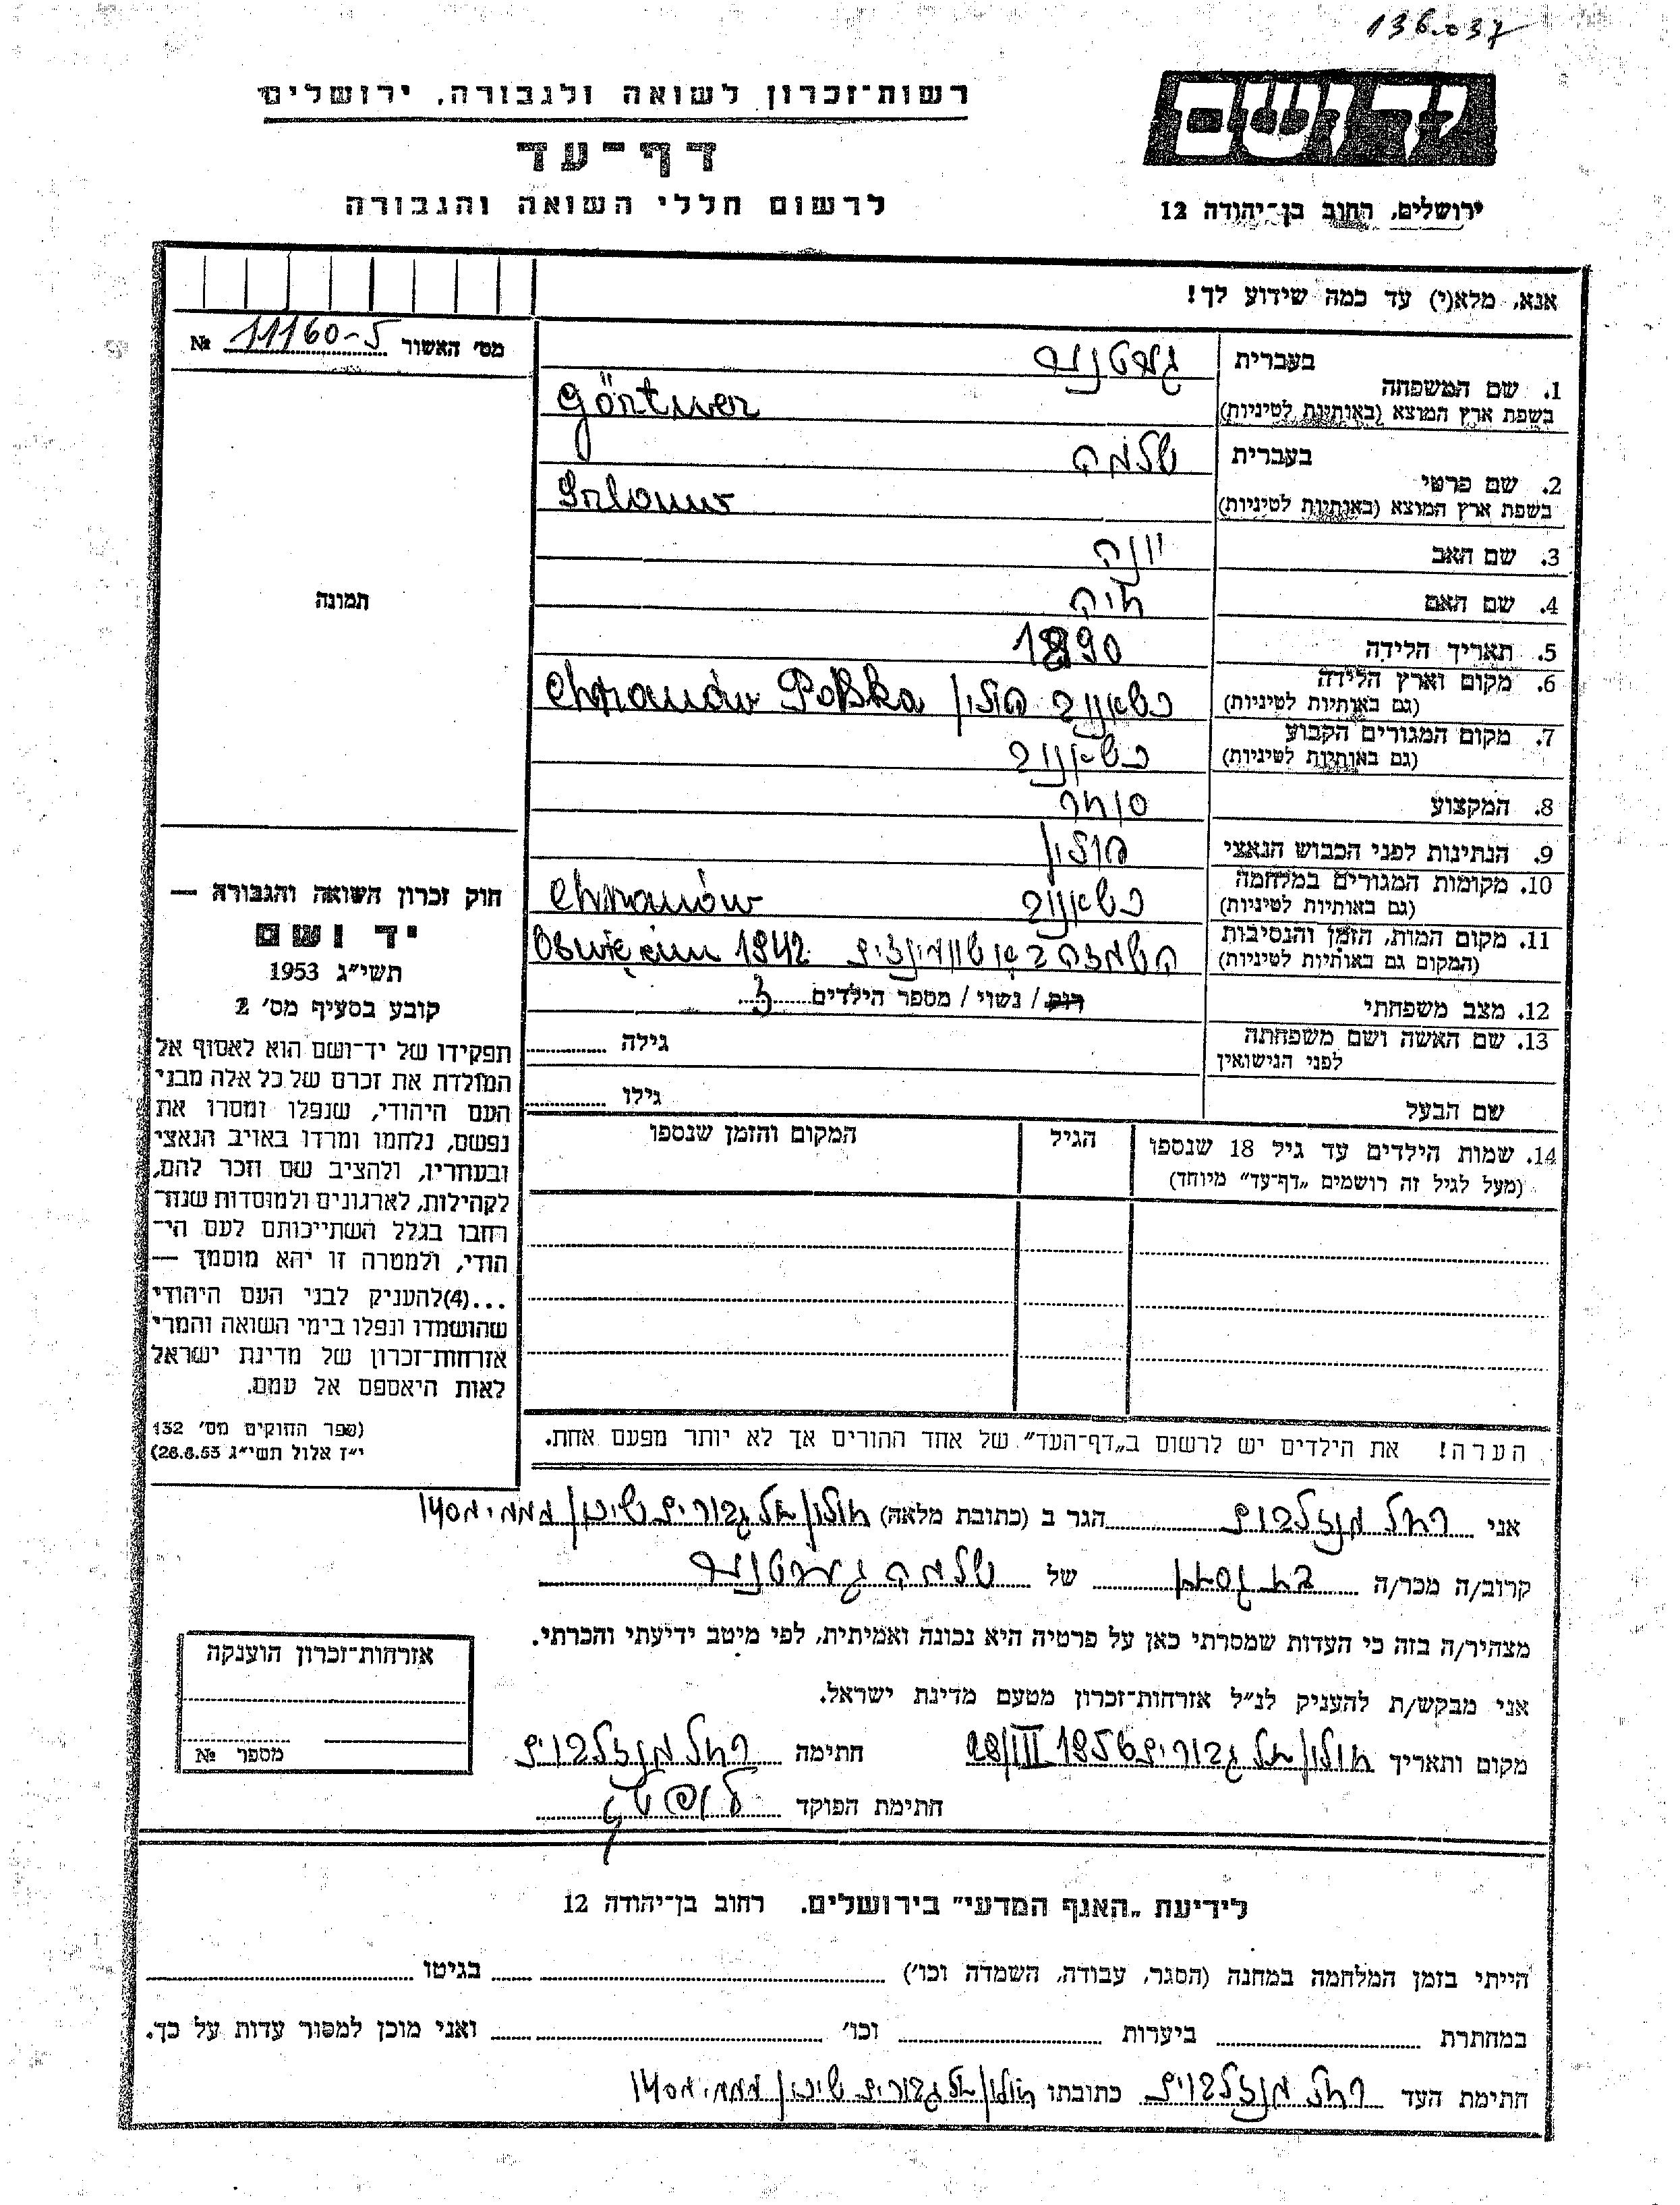 136.037
יד ושם
רשות־זכרון לשואה ולגבורה, ירושלים
דף־עד
לרשום חללי השואה והגבורה
ירושלים, רחוב בן־יהודה 12
אנא, מלא(י) עד כמה שידוע לך!
מס׳ האשור 11160-5 №
בעברית
1. שם המשפחה
בשפת ארץ המוצא (באותיות לטיניות)
Görtner
בעברית שלמה
2. שם פרטי
בשפת ארץ המוצא (באותיות לטיניות)
3. שם האב יונה
4. שם האם חיה
5. תאריך הלידה 1890
6. מקום וארץ הלידה
(גם באותיות לטיניות) כשאנוב פולין Chrzanów Polska
7. מקום המגורים הקבוע
(גם באותיות לטיניות) כשאנוב
8. המקצוע סוחר
9. הנתינות לפני הכבוש הנאצי פולין
10. מקומות המגורים במלחמה
(גם באותיות לטיניות) כשאנוב Chrzanów
11. מקום המות, הזמן והנסיבות
(המקום גם באותיות לטיניות) Oświęcim 1942
12. מצב משפחתי רוק / נשוי / מספר הילדים 3
13. שם האשה ושם משפחתה
לפני הנישואין
גילה
שם הבעל גילו
14. שמות הילדים עד גיל 18 שנספו
(מעל לגיל זה רושמים „דף־עד״ מיוחד)
הגיל
המקום והזמן שנספו
הערה! את הילדים יש לרשום ב„דף־העד״ של אחד ההורים אך לא יותר מפעם אחת.
תמונה
חוק זכרון השואה והגבורה —
יד ושם
תשי״ג 1953
קובע בסעיף מס׳ 2
תפקידו של יד־ושם הוא לאסוף אל
המולדת את זכרם של כל אלה מבני
העם היהודי, שנפלו ומסרו את
נפשם, נלחמו ומרדו באויב הנאצי
ובעוזריו, ולהציב שם וזכר להם,
לקהילות, לארגונים ולמוסדות שנח־
רבו בגלל השתייכותם לעם הי־
הודי, ולמטרה זו יהא מוסמך —
...(4)להעניק לבני העם היהודי
שהושמדו ונפלו בימי השואה והמרי
אזרחות־זכרון של מדינת ישראל
לאות היאספם אל עמם.
(ספר החוקים מס׳ 132
י״ז אלול תשי״ג 28.8.53)
אני רחל מנדלבוים הגר ב (כתובת מלאה) חולון תל גבורים שיכון
קרוב/ה מכר/ה של שלמה
מצהיר/ה בזה כי העדות שמסרתי כאן על פרטיה היא נכונה ואמיתית, לפי מיטב ידיעתי והכרתי.
אני מבקש/ת להעניק לנ״ל אזרחות־זכרון מטעם מדינת ישראל.
מקום ותאריך חולון תל גבורים 28/III 1956 חתימה רחל מנדלבוים
חתימת הפוקד
אזרחות־זכרון הוענקה
מספר №
לידיעת „האגף המדעי״ בירושלים. רחוב בן־יהודה 12
הייתי בזמן המלחמה במחנה (הסגר, עבודה, השמדה וכו׳) בגיטו
במחתרת ביערות וכו׳ ואני מוכן למסור עדות על כך.
חתימת העד רחל מנדלבוים כתובתו חולון תל גבורים שיכון